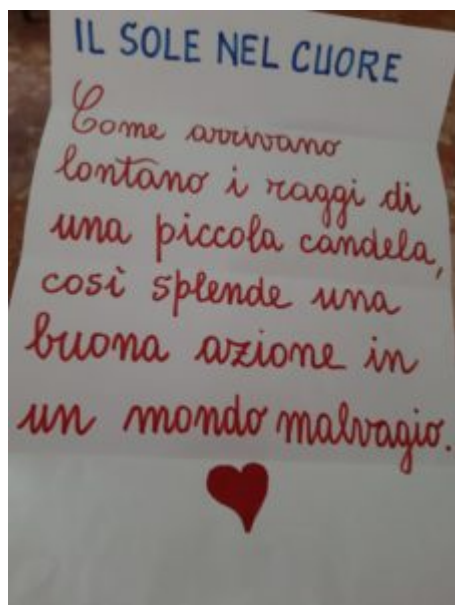 IL SOLE NEL CUORE
Come arrivano
lontano i raggi di
una piccola candela,
così splende una
buona azione in
un mondo malvagio.